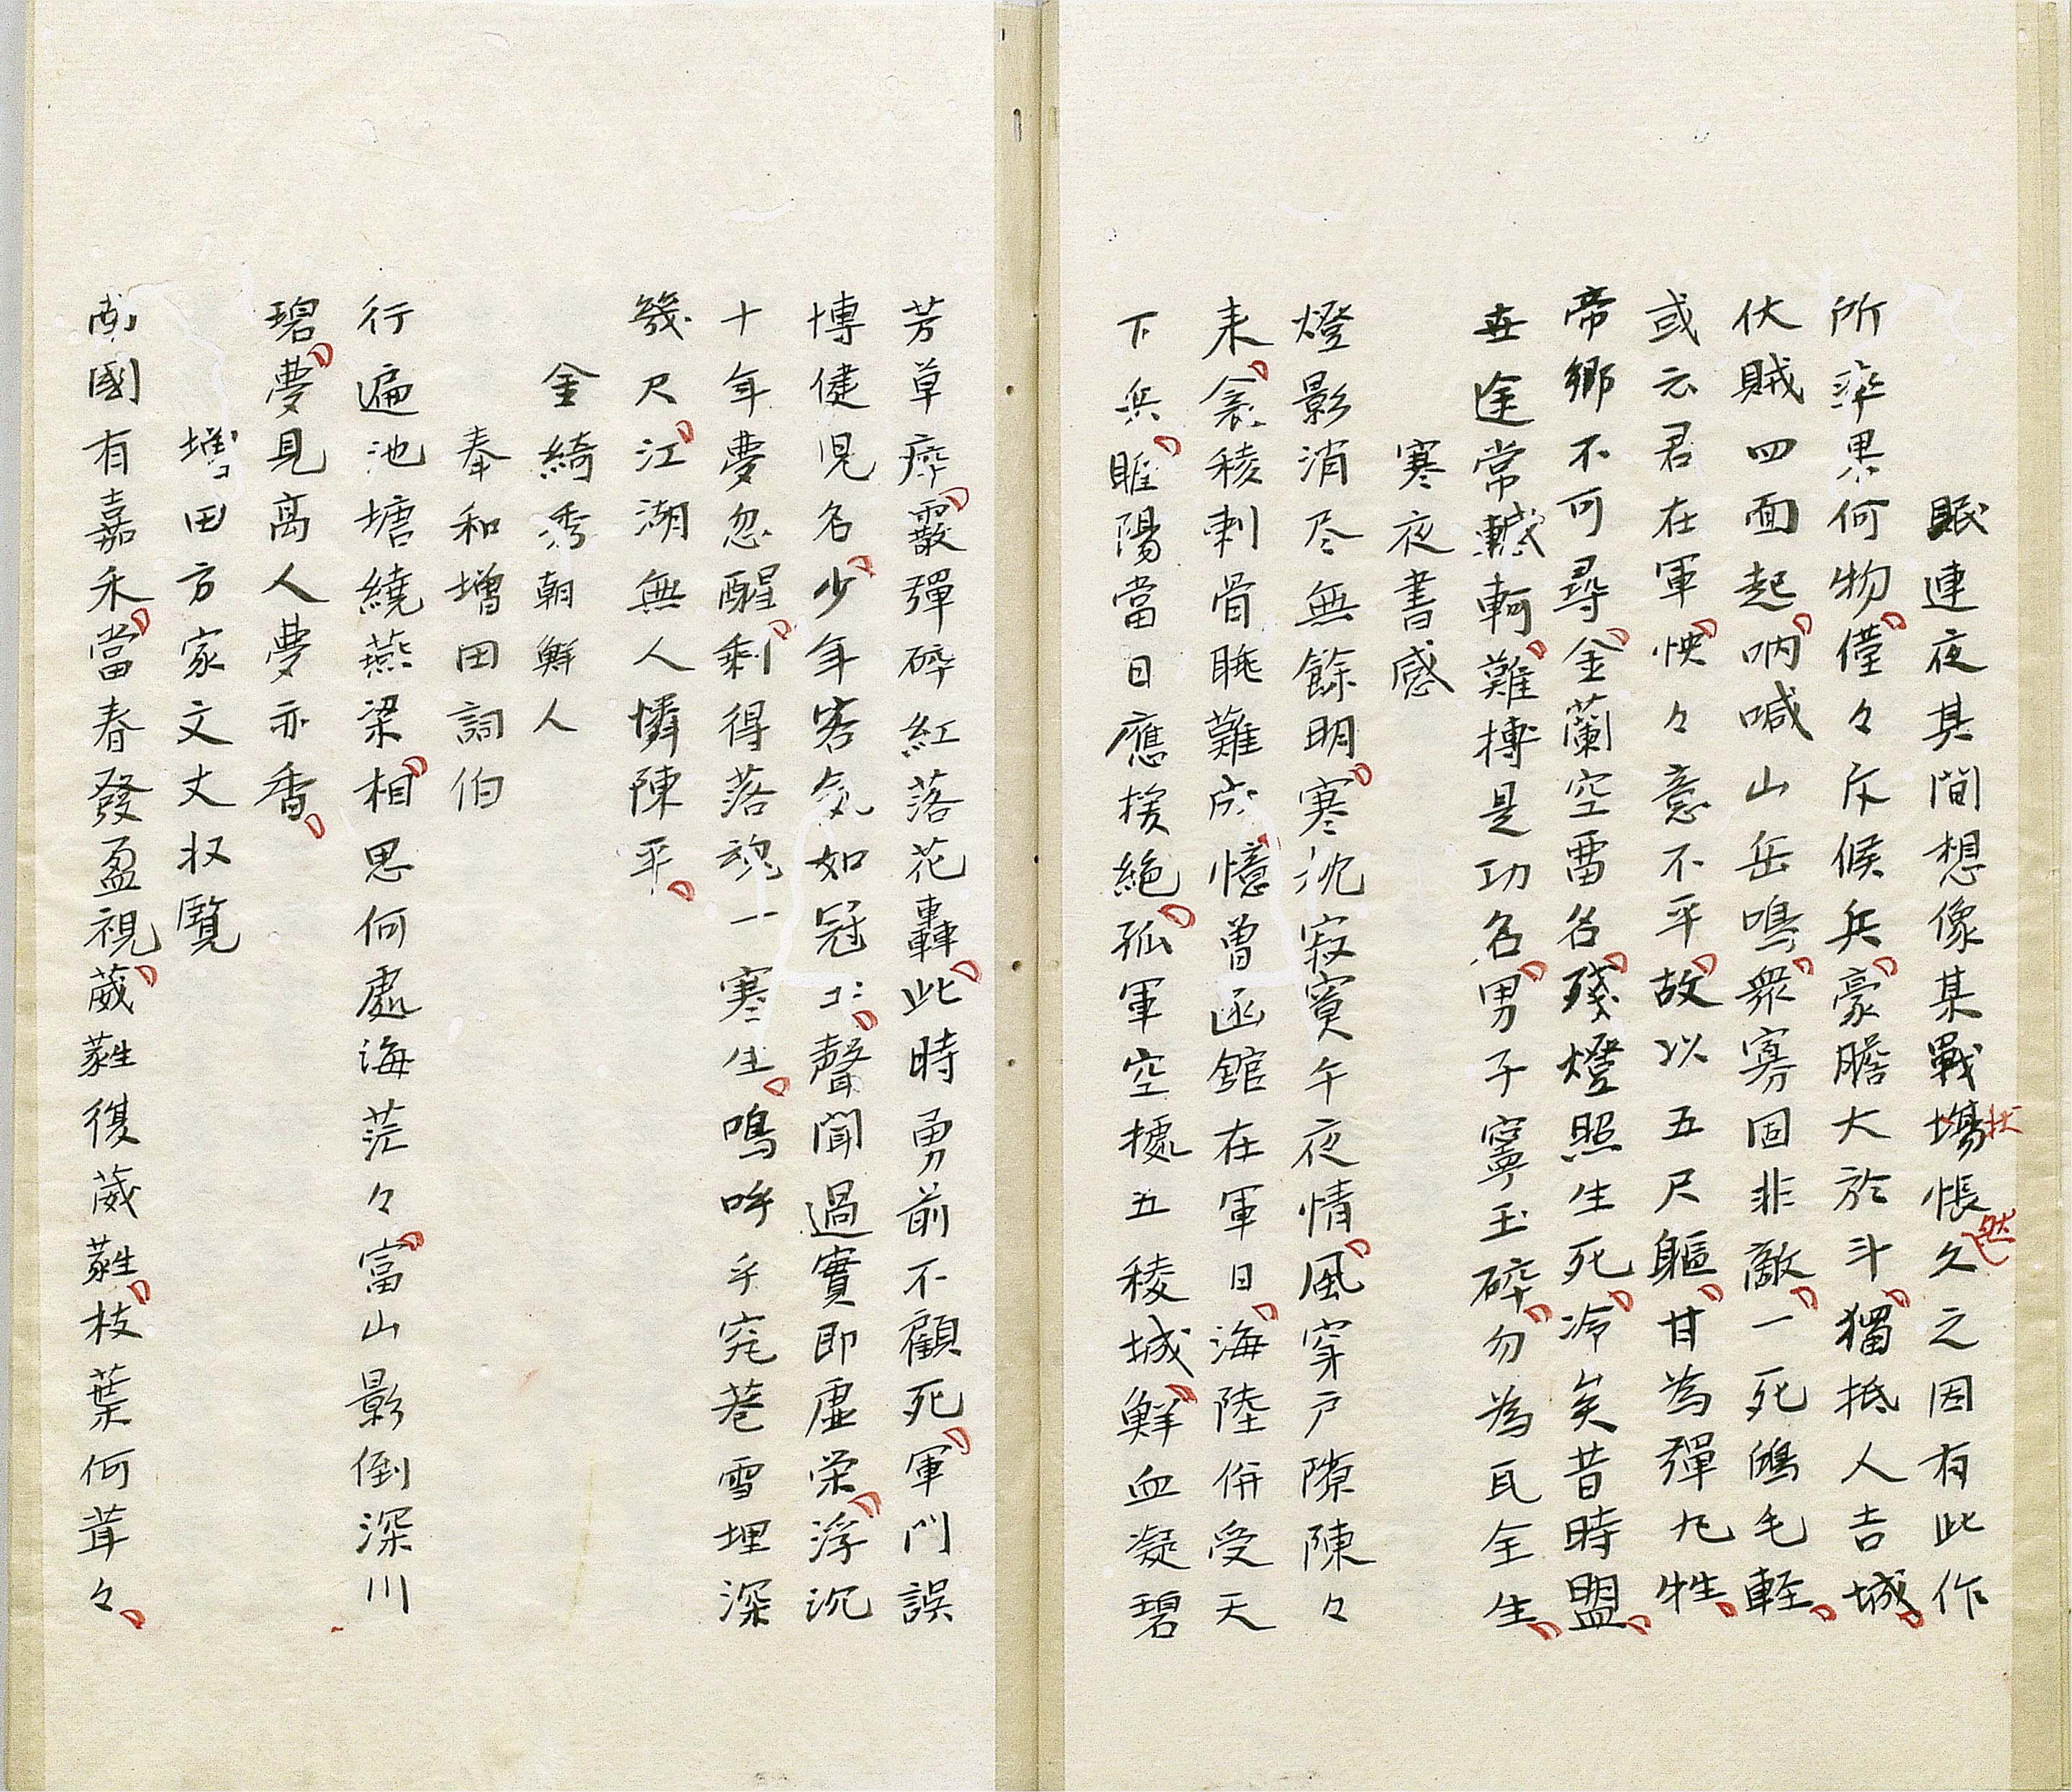 眠連夜其間想像某戰場悵久之因有此作
状
然
所率果何物僅々斥候兵豪膽大於斗獨抵人吉城
伏賊四面起吶喊山岳鳴衆寡固非敵一死鴻毛輕
或云君在軍怏々意不平故以五尺軀甘為彈丸牲
帝鄉不可尋金蘭空留名殘燈照生死冷矣昔時盟
世途常轗軻難摶是功名男子寧玉碎勿為瓦全生
寒夜書感
燈影消尽無餘明寒沈寂寞午夜情風穿戸隙陳々
来衾稜刺骨眠難成憶曽函館在軍日海陸併受天
下兵睢陽當日應援絶孤軍空據五稜城鮮血凝碧
芳草瘁霰彈碎紅落花轟此時勇前不顧死軍門誤
博健児名少年客気如冠玉聲聞過實即虚栄浮沉
十年夢忽醒剰得落魂一寒生鳴呼乎窮巷雪埋深
幾尺江湖無人憐陳平
金綺秀朝鮮人
奉和増田詞伯
行遍池塘繞燕梁相思何處海茫々富山影倒深川
碧夢見高人夢亦香
増田方家文丈收覧
南國有嘉禾當春發盈視葳蕤復葳蕤枝葉何茸々